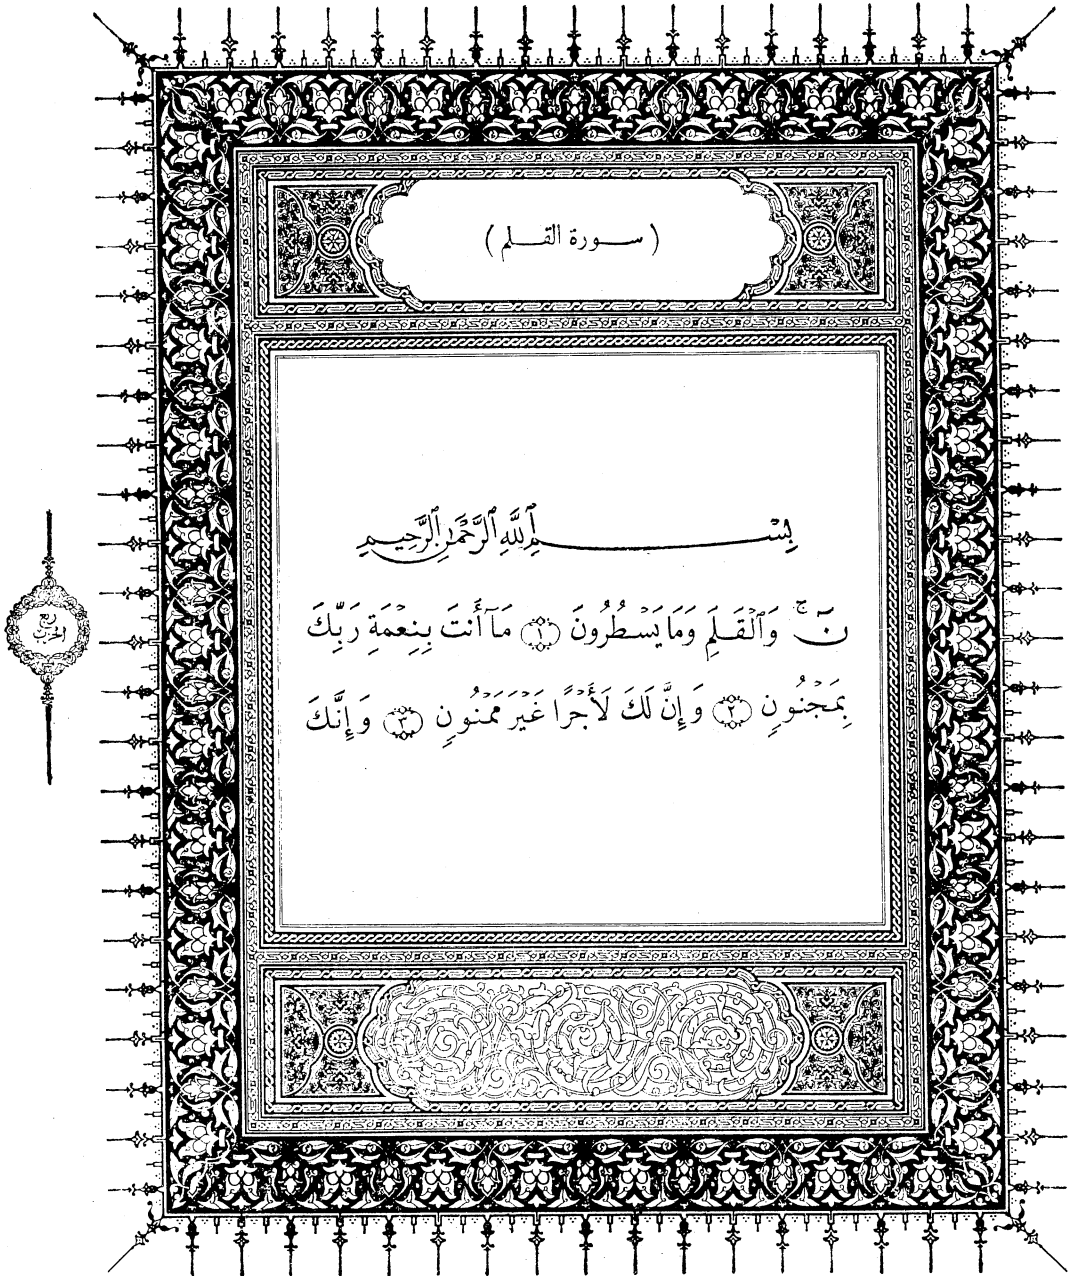 ( سورة القلم )
بِسْمِ ٱللَّهِ ٱلرَّحْمَٰنِ ٱلرَّحِيمِ
نٓ ۚ وَٱلْقَلَمِ وَمَا يَسْطُرُونَ ﴿١﴾ مَآ أَنتَ بِنِعْمَةِ رَبِّكَ
بِمَجْنُونٍ ﴿٢﴾ وَإِنَّ لَكَ لَأَجْرًا غَيْرَ مَمْنُونٍ ﴿٣﴾ وَإِنَّكَ
ربع
الحزب